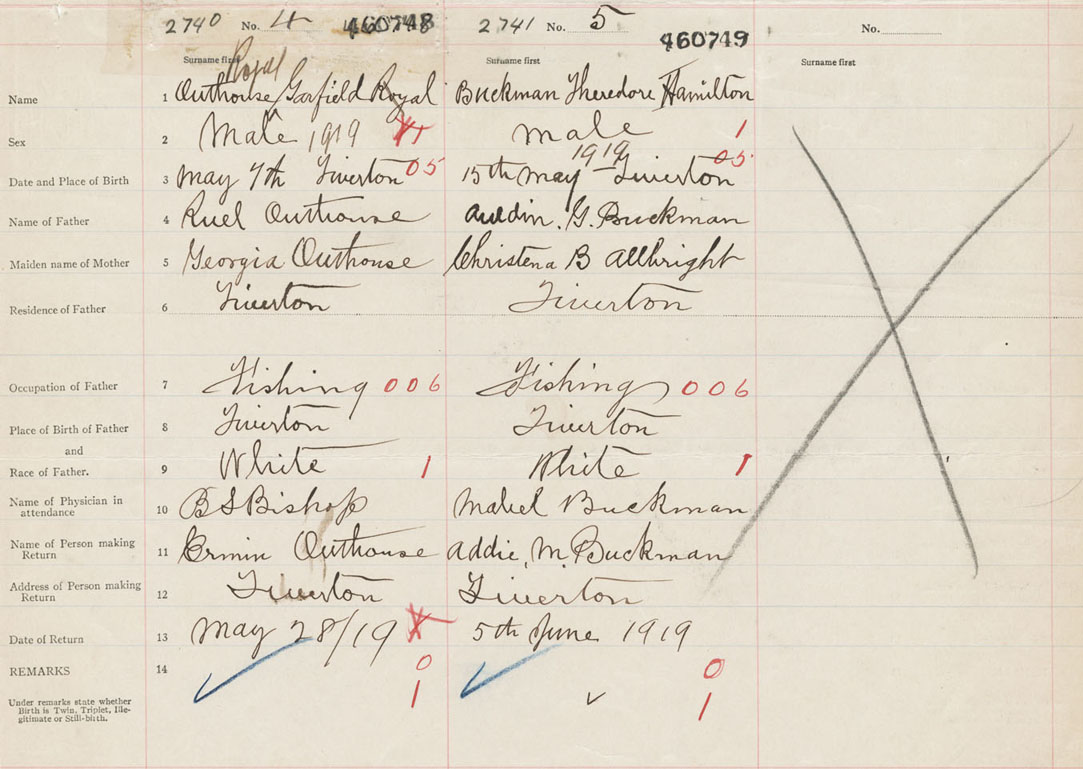 2740 No. 4 460748 2741 No. 5 460749 No.
Surname first Surname first Surname first
Royal
Name 1 Outhouse Garfield Royal Buckman Theredore Hamilton
Sex 2 Male 1919 1 male 1
1919
Date and Place of Birth 3 May 7th Tiverton 05 15th May Tiverton 05
Name of Father 4 Ruel Outhouse Auldin. G. Buckman
Maiden name of Mother 5 Georgia Outhouse Christena B Allbright
Residence of Father 6 Tiverton Tiverton
Occupation of Father 7 Fishing 006 Fishing 006
Place of Birth of Father 8 Tiverton Tiverton
and
Race of Father. 9 White 1 White 1
Name of Physician in
attendance 10 B S Bishop Mabel Buckman
Name of Person making
Return 11 Ermin Outhouse Addie. M. Buckman
Address of Person making
Return 12 Tiverton Tiverton
Date of Return 13 May 28/19 5th June 1919
REMARKS 14 0 0
Under remarks state whether
Birth is Twin, Triplet, Ille-
gitimate or Still-birth. 1 1